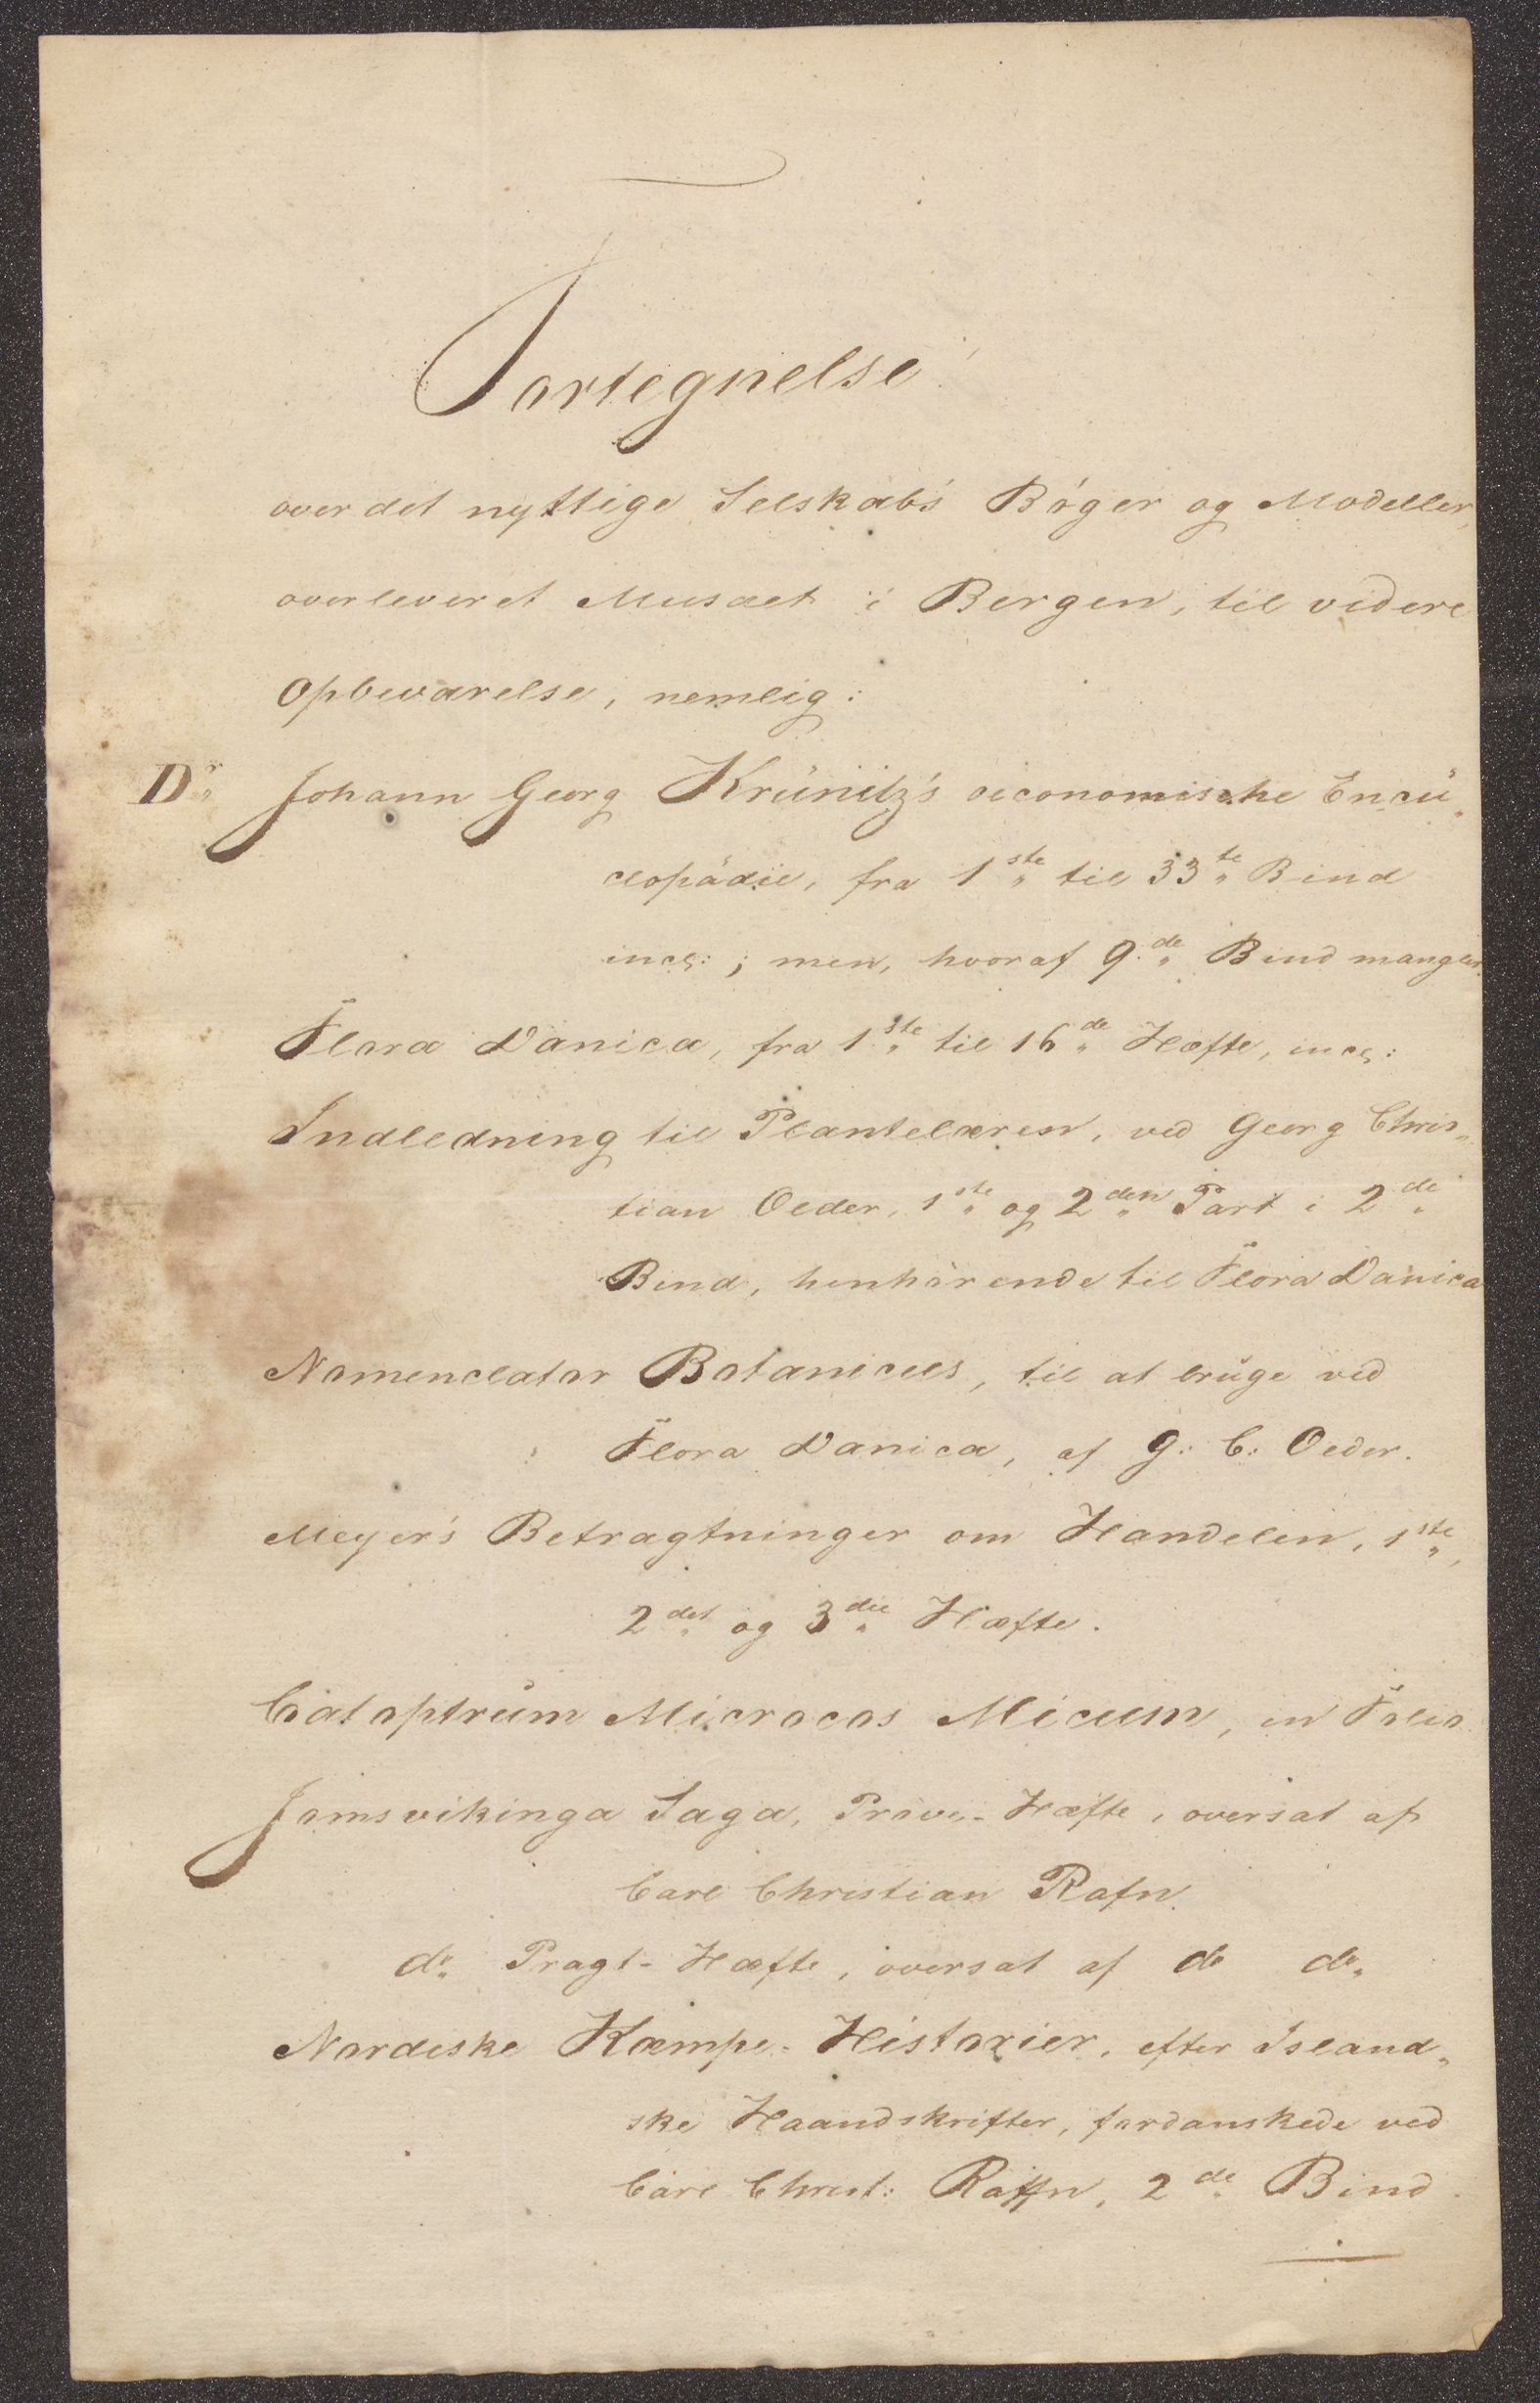 Fortegnelse
over det nyttige Selskabs Bøger og Modeller,
overleveret Musæet i Bergen, til videre
Opbevarelse, nemlig:
Dr. Johann Georg Krünitz's oiconomische Encü„
clopädie, fra 1ste til 33te Bind
incl:; men, hvoraf 9de Bind mangler.
Flora Danica, fra 1ste til 16de Hæfte, incl:
Indledning til Plantelæren, ved Georg Chris„
tian Oeder, 1ste og 2den Part i 2de
Bind, henhørende til Flora Danica
Nomenclator Botanicus, til at bruge ved
Flora Danica, af G: C: Oeder.
Meyer's Betragtninger om Handelen, 1ste,
2det og 3die Hæfte.
Catoptrum Microcos Micum, in Folio
Jomsvikinga Saga, Prøve-Hæfte, oversat af
Carl Christian Rafn.
do Pragt-Hæfte, oversat af do do
Nordiske Kæmpe-Historier, efter Island„
ske Haandskrifter, fordanskede ved
Carl Christ: Raffn, 2de Bind.